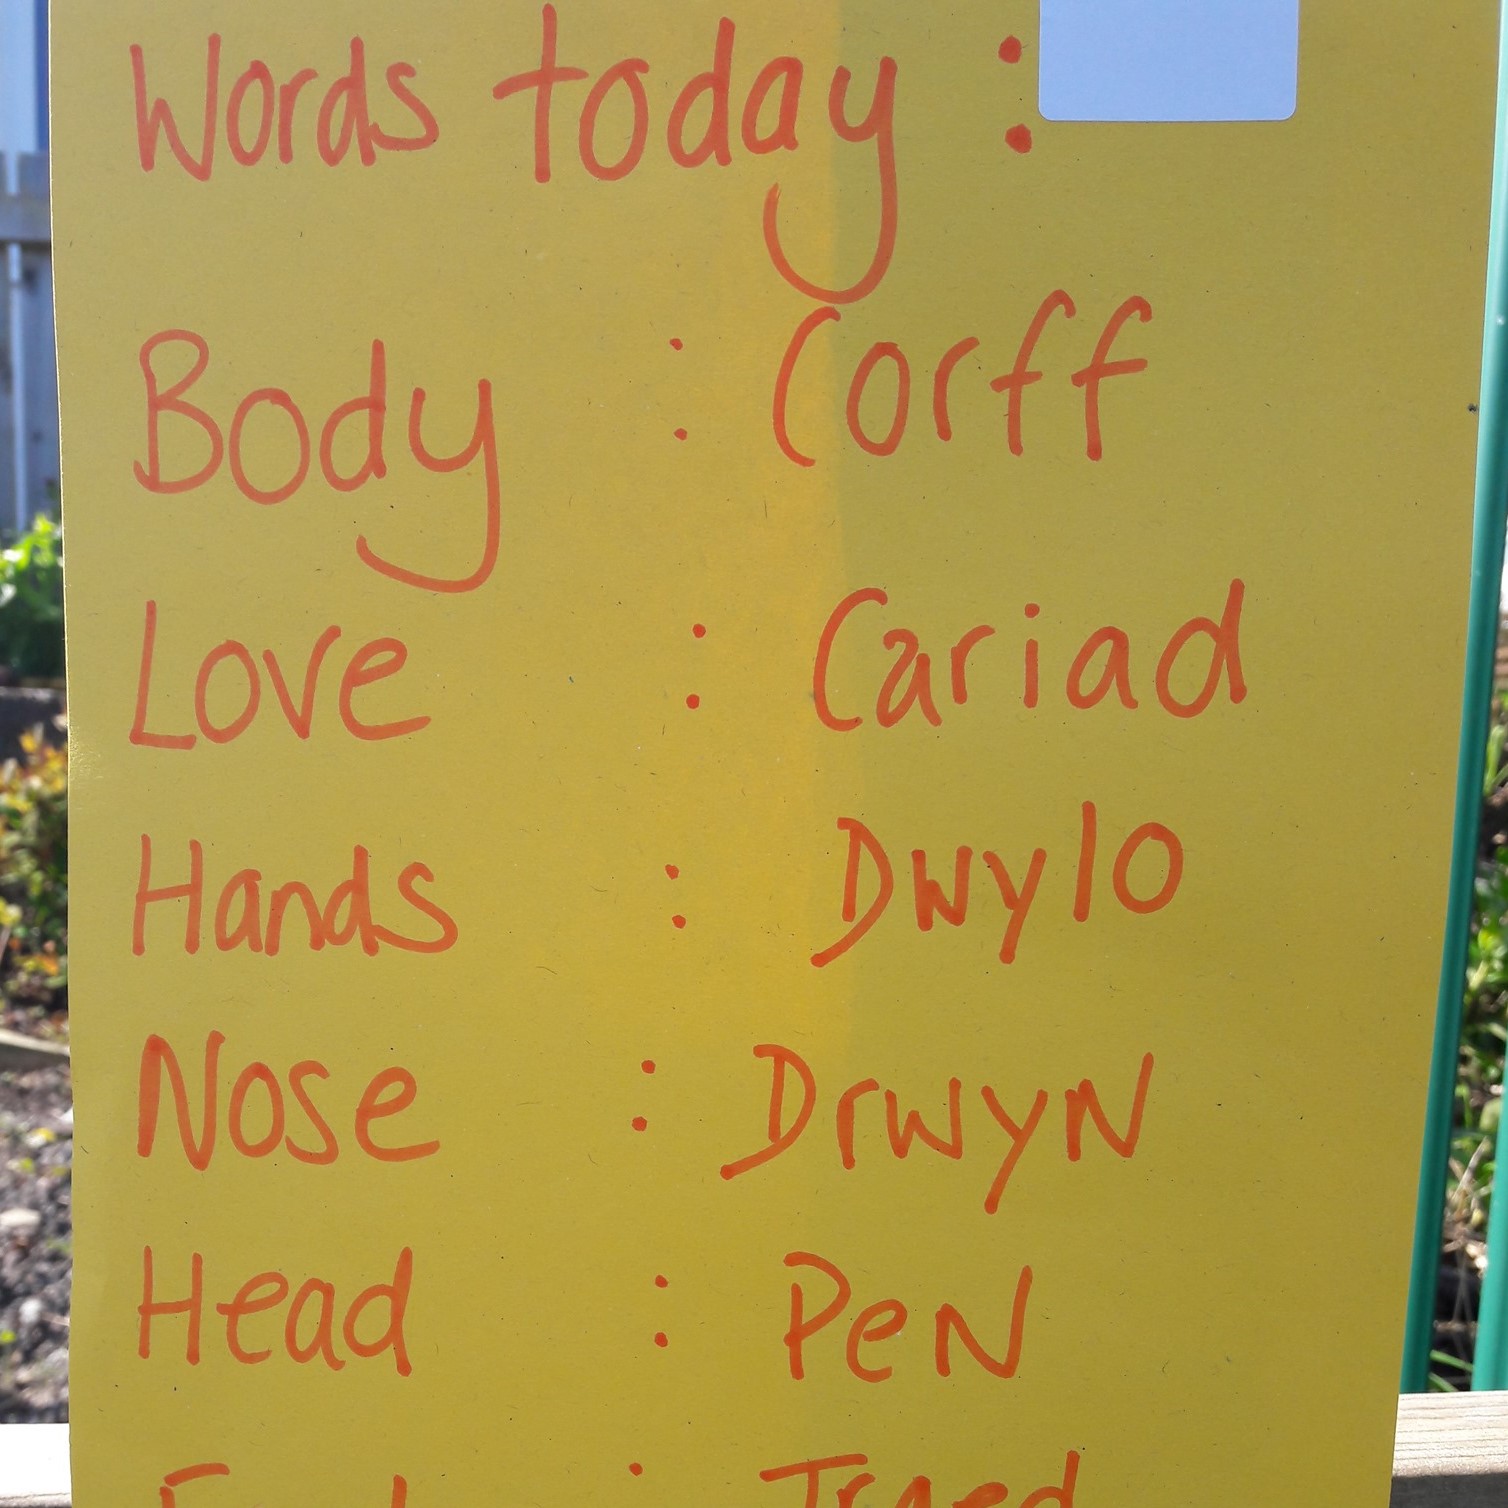 Words today :
Body : Corff
Love : Cariad
Hands : Dwylo
Nose : Drwyn
Head : Pen
: Traed